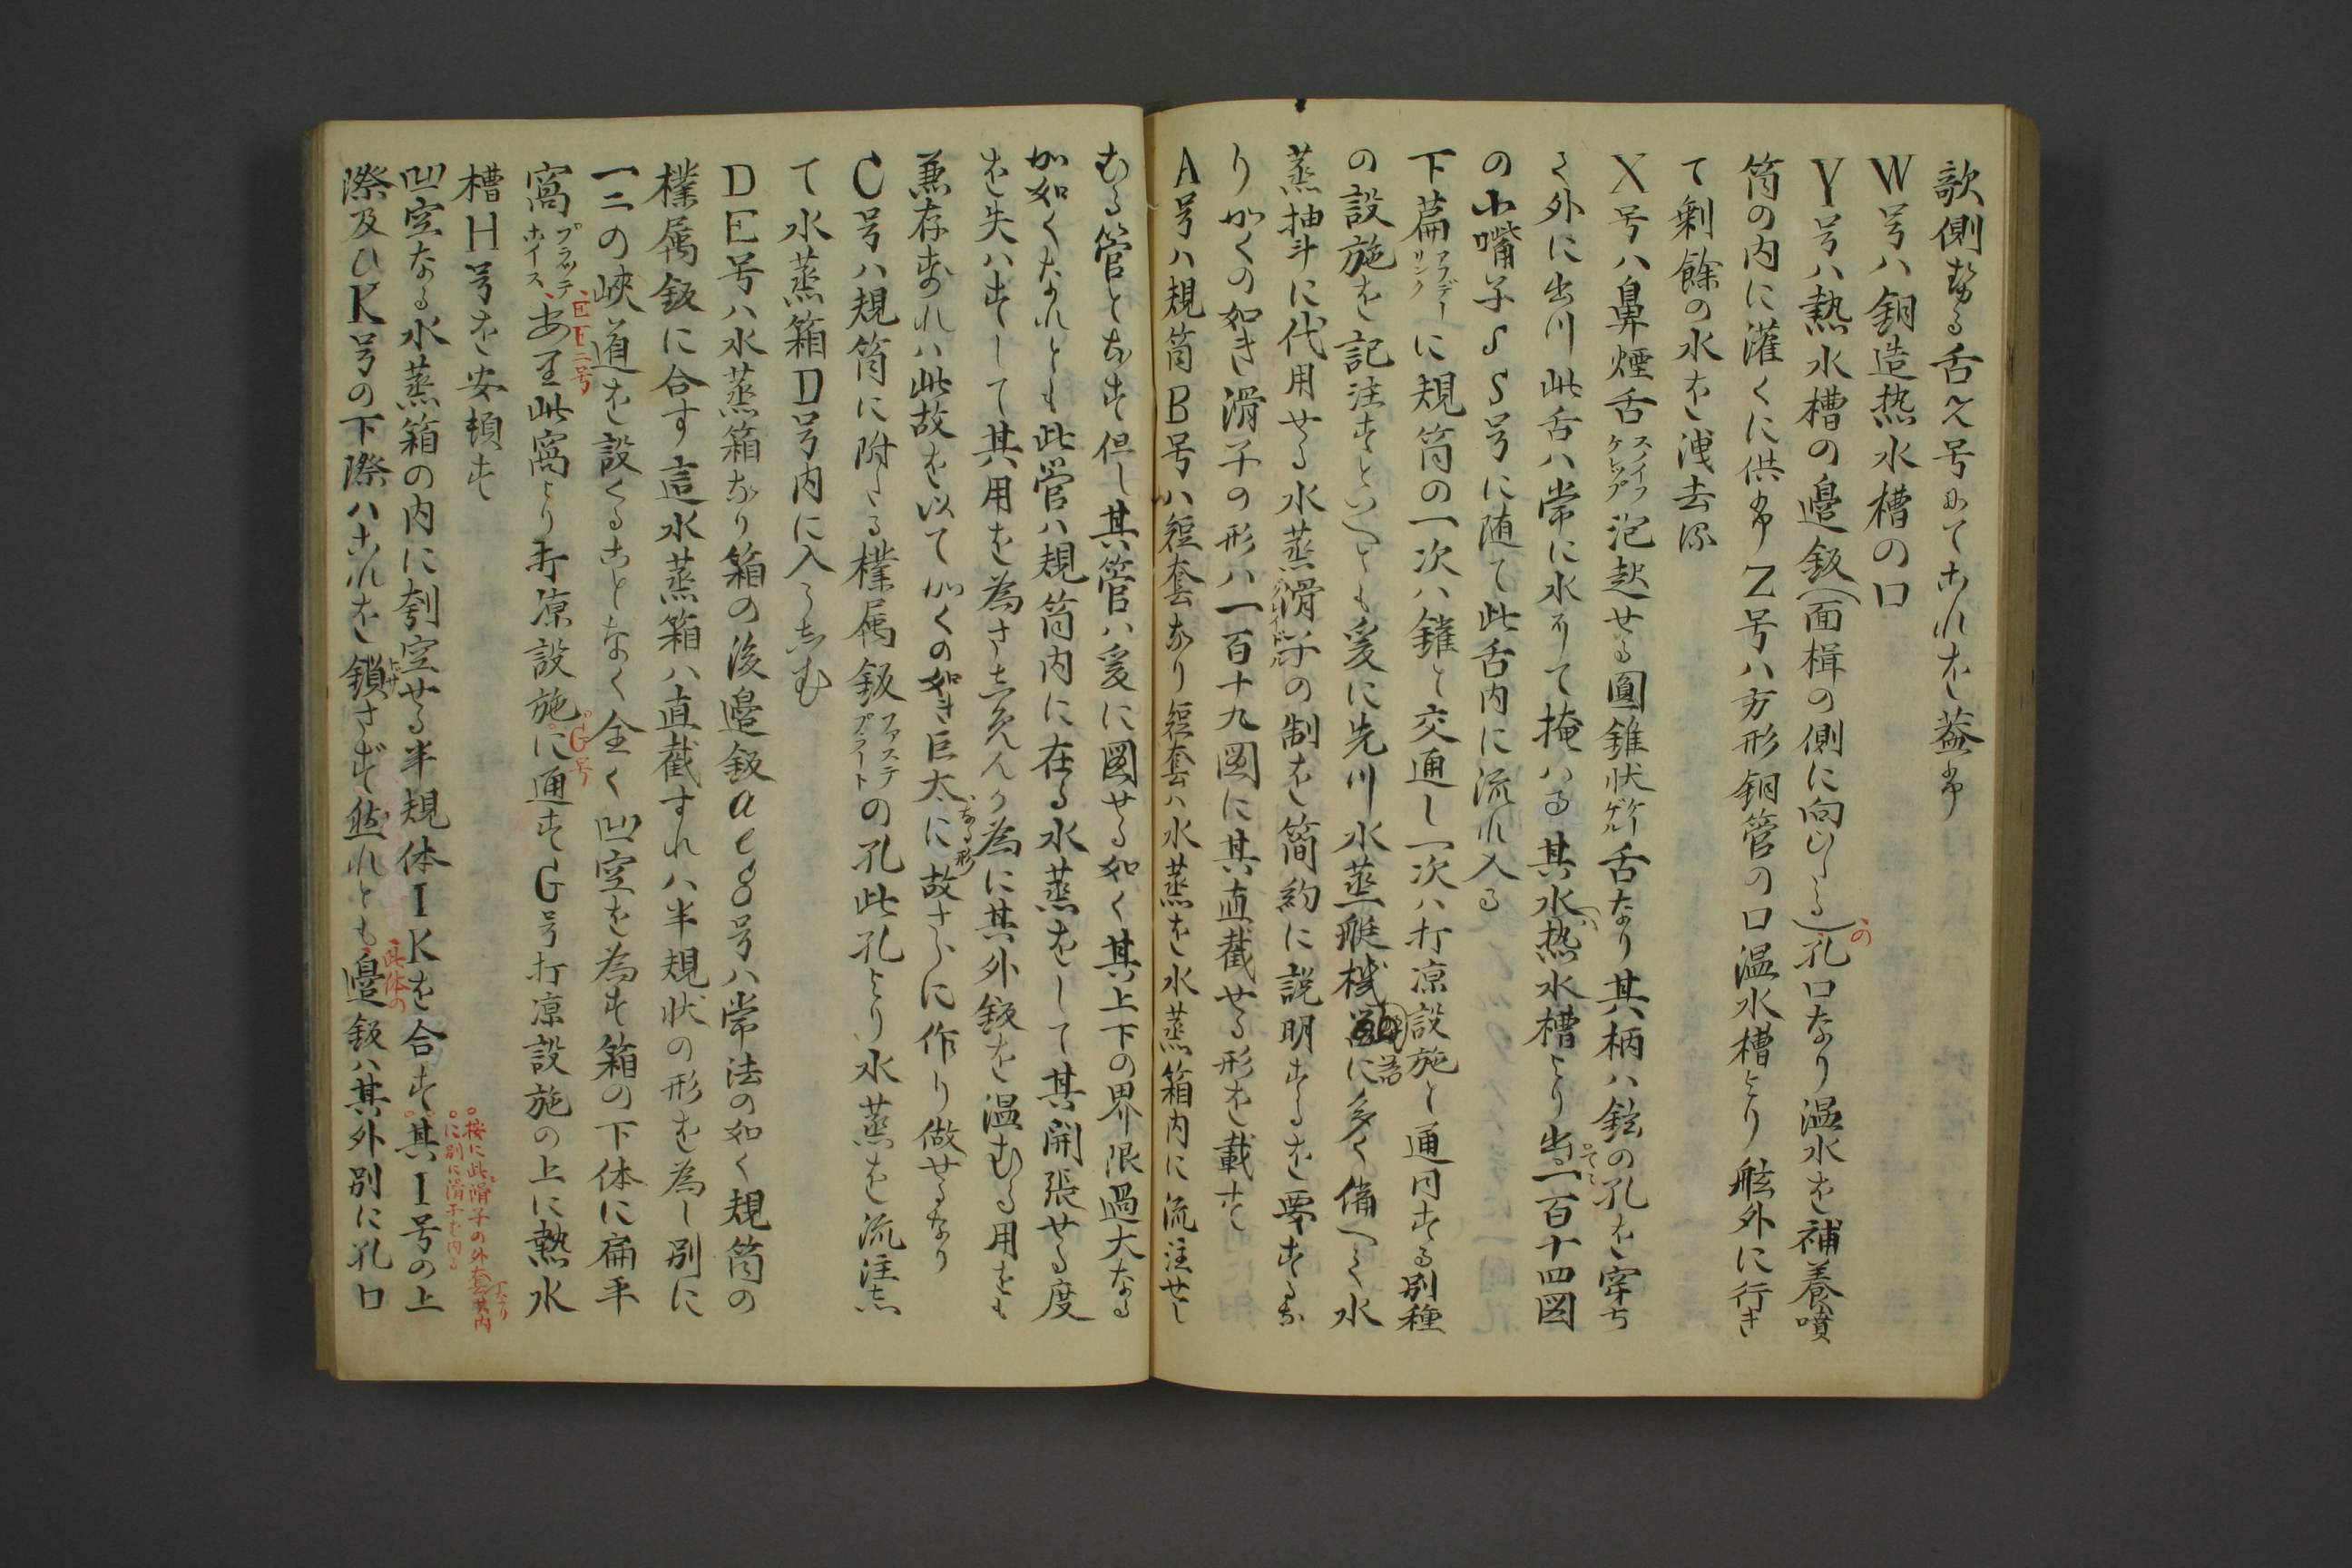 歌側せる舌Z号にてこれを蓋ふ
W号ハ銅造热水槽の口
Y号ハ熱水槽の邉鈑(面楫の側に向ひたる)の孔口なり温水を補養噴
筒の内に灌くに供ふZ号ハ方形銅管の口温水槽より舷外に行き
て剰餘の水を洩去ル
X号ハ鼻煙舌スノイフケレップ泡起せる圓錐状ケーゲル舌なり其柄ハ鉉の孔を穿ち
て外に出川此舌ハ常に水ありて掩ハる其水ハ热水槽より出て一百十四図
の小嘴子SS号に随て此舌内に流れ入る
下篇アフデーリンクに規筒の一次ハ鑵と交通し一次ハ打凉設施と通同する別種
の設施を記注すといへとも爰に先川水蒸艇機に多く備へて水
蒸抽斗に代用せる水蒸滑子の制を簡約に説明するを要するなり
かくの如き滑子の形ハ一百十九図に其直截せる形を載す
A号ハ規筒B号ハ短套なり短套ハ水蒸を水蒸箱内に流注せし
むる管となす但し其管ハ爰に図せる如く其上下の界限過大なる
か如くなれとも此管ハ規筒内に在る水蒸をして其開張せる度
を失ハすして其用を為さしめんか為に其外鈑を温むる用をも
兼存すれハ此故を以てかくの如き巨大なる形に故さらに作り做せるなり
C号ハ規筒に附たる檏属鈑ファステプラートの孔此孔より水蒸を流注し
て水蒸箱D号内に入らしむ
DE号ハ水蒸箱なり箱の後邉鈑aeg号ハ常法の如く規筒の
檏属鈑に合す這水蒸箱ハ直截すれハ半規状の形を為し別に
一二の峽道を設くることなく全く凹空を為す箱の下体に扁平
窩プラッテホイスEE二号あり此窩より打凉設施G号に通すG号打凉設施の上に熱水
槽H号を安頓す
按に此滑子の外套なり其内
に別に滑子を内る
凹空なる水蒸箱の内に刳空せる半規体IKを合す其I号の上
際及ひK号の下際ハこれを鎖トサさす然れとも此体の邉鈑ハ其外別に孔口